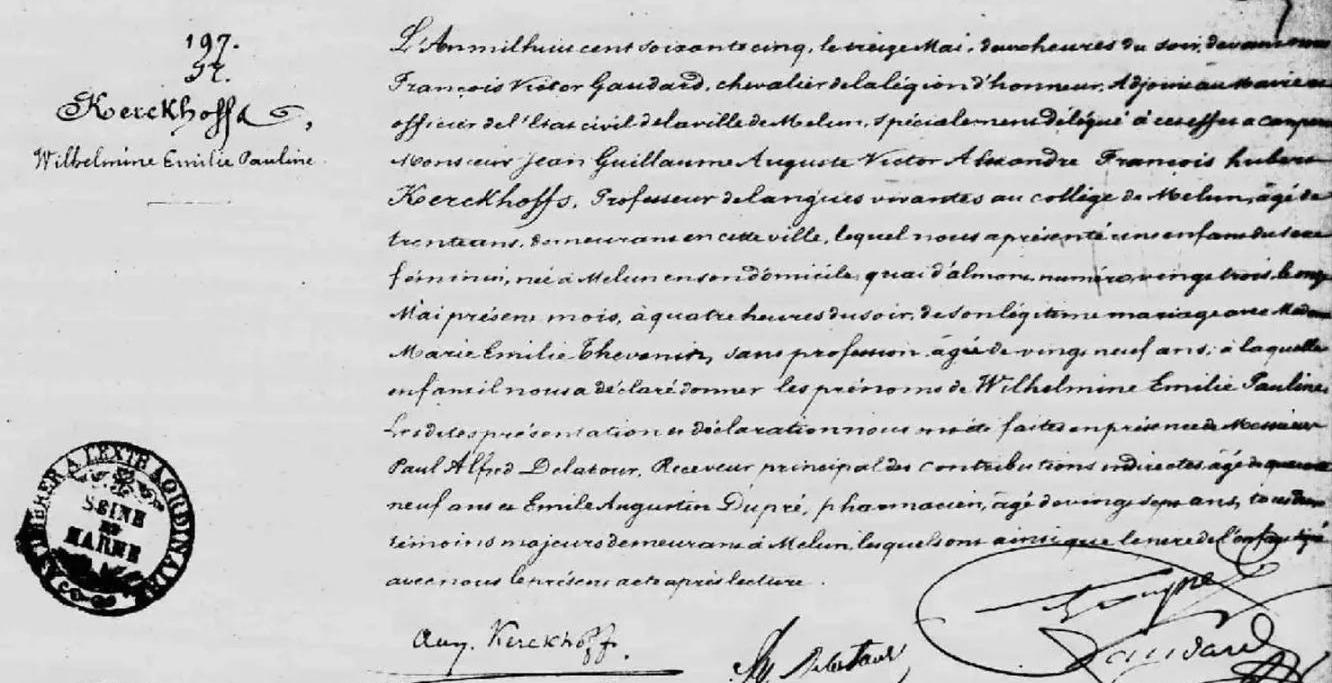 197.
57.
Kerckhoffs,
Wilhelmine Emilie Pauline.
L'An mil huit cent soixante cinq, le treize Mai, deux heures du soir, devant nous
François Victor Gaudard, chevalier de la légion d'honneur, Adjoint au Maire et
officier de l'Etat civil de la ville de Melun, spécialement délégué à cet effet a comparu
Monsieur Jean Guillaume Auguste Victor Alexandre François hubert
Kerckhoffs, Professeur de langues vivantes au collège de Melun, âgé de
trente ans, demeurant en cette ville, lequel nous a présenté un enfant du sexe
féminin, née à Melun en son domicile, quai d'almont, numéro vingt trois, le onze
Mai présent mois, à quatre heures du soir, de son légitime mariage avec Madame
Marie Emilie Thevenin, sans profession, âgée de vingt neuf ans; à laquelle
enfant il nous a déclaré donner les prénoms de Wilhelmine Emilie Pauline.
Les dites présentation et déclaration nous ont été faites en présence de Messieurs
Paul Alfred Delatour, Receveur principal des contributions indirectes, âgé de quarante
neuf ans et Emile Augustin Dupré, pharmacien, âgé de vingt sept ans, tous deux
témoins majeurs demeurant à Melun, lesquels ont ainsi que le père de l'enfant signé
avec nous le présent acte après lecture.
TIMBRER A L'EXTRAORDINAIRE
SEINE
ET
MARNE
Aug. Kerckhoffs.
Delatour
Dupré
Gaudard